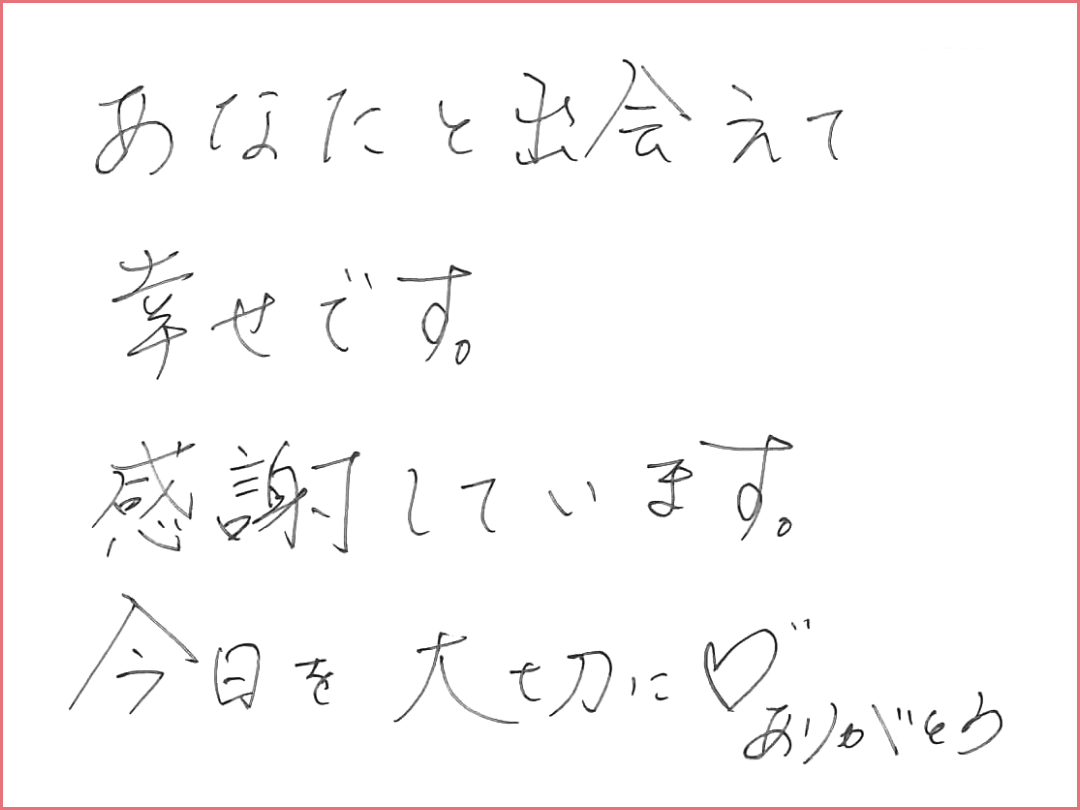 あなたと出会えて
幸せです。
感謝しています。
今日を大切に♡
ありがとう